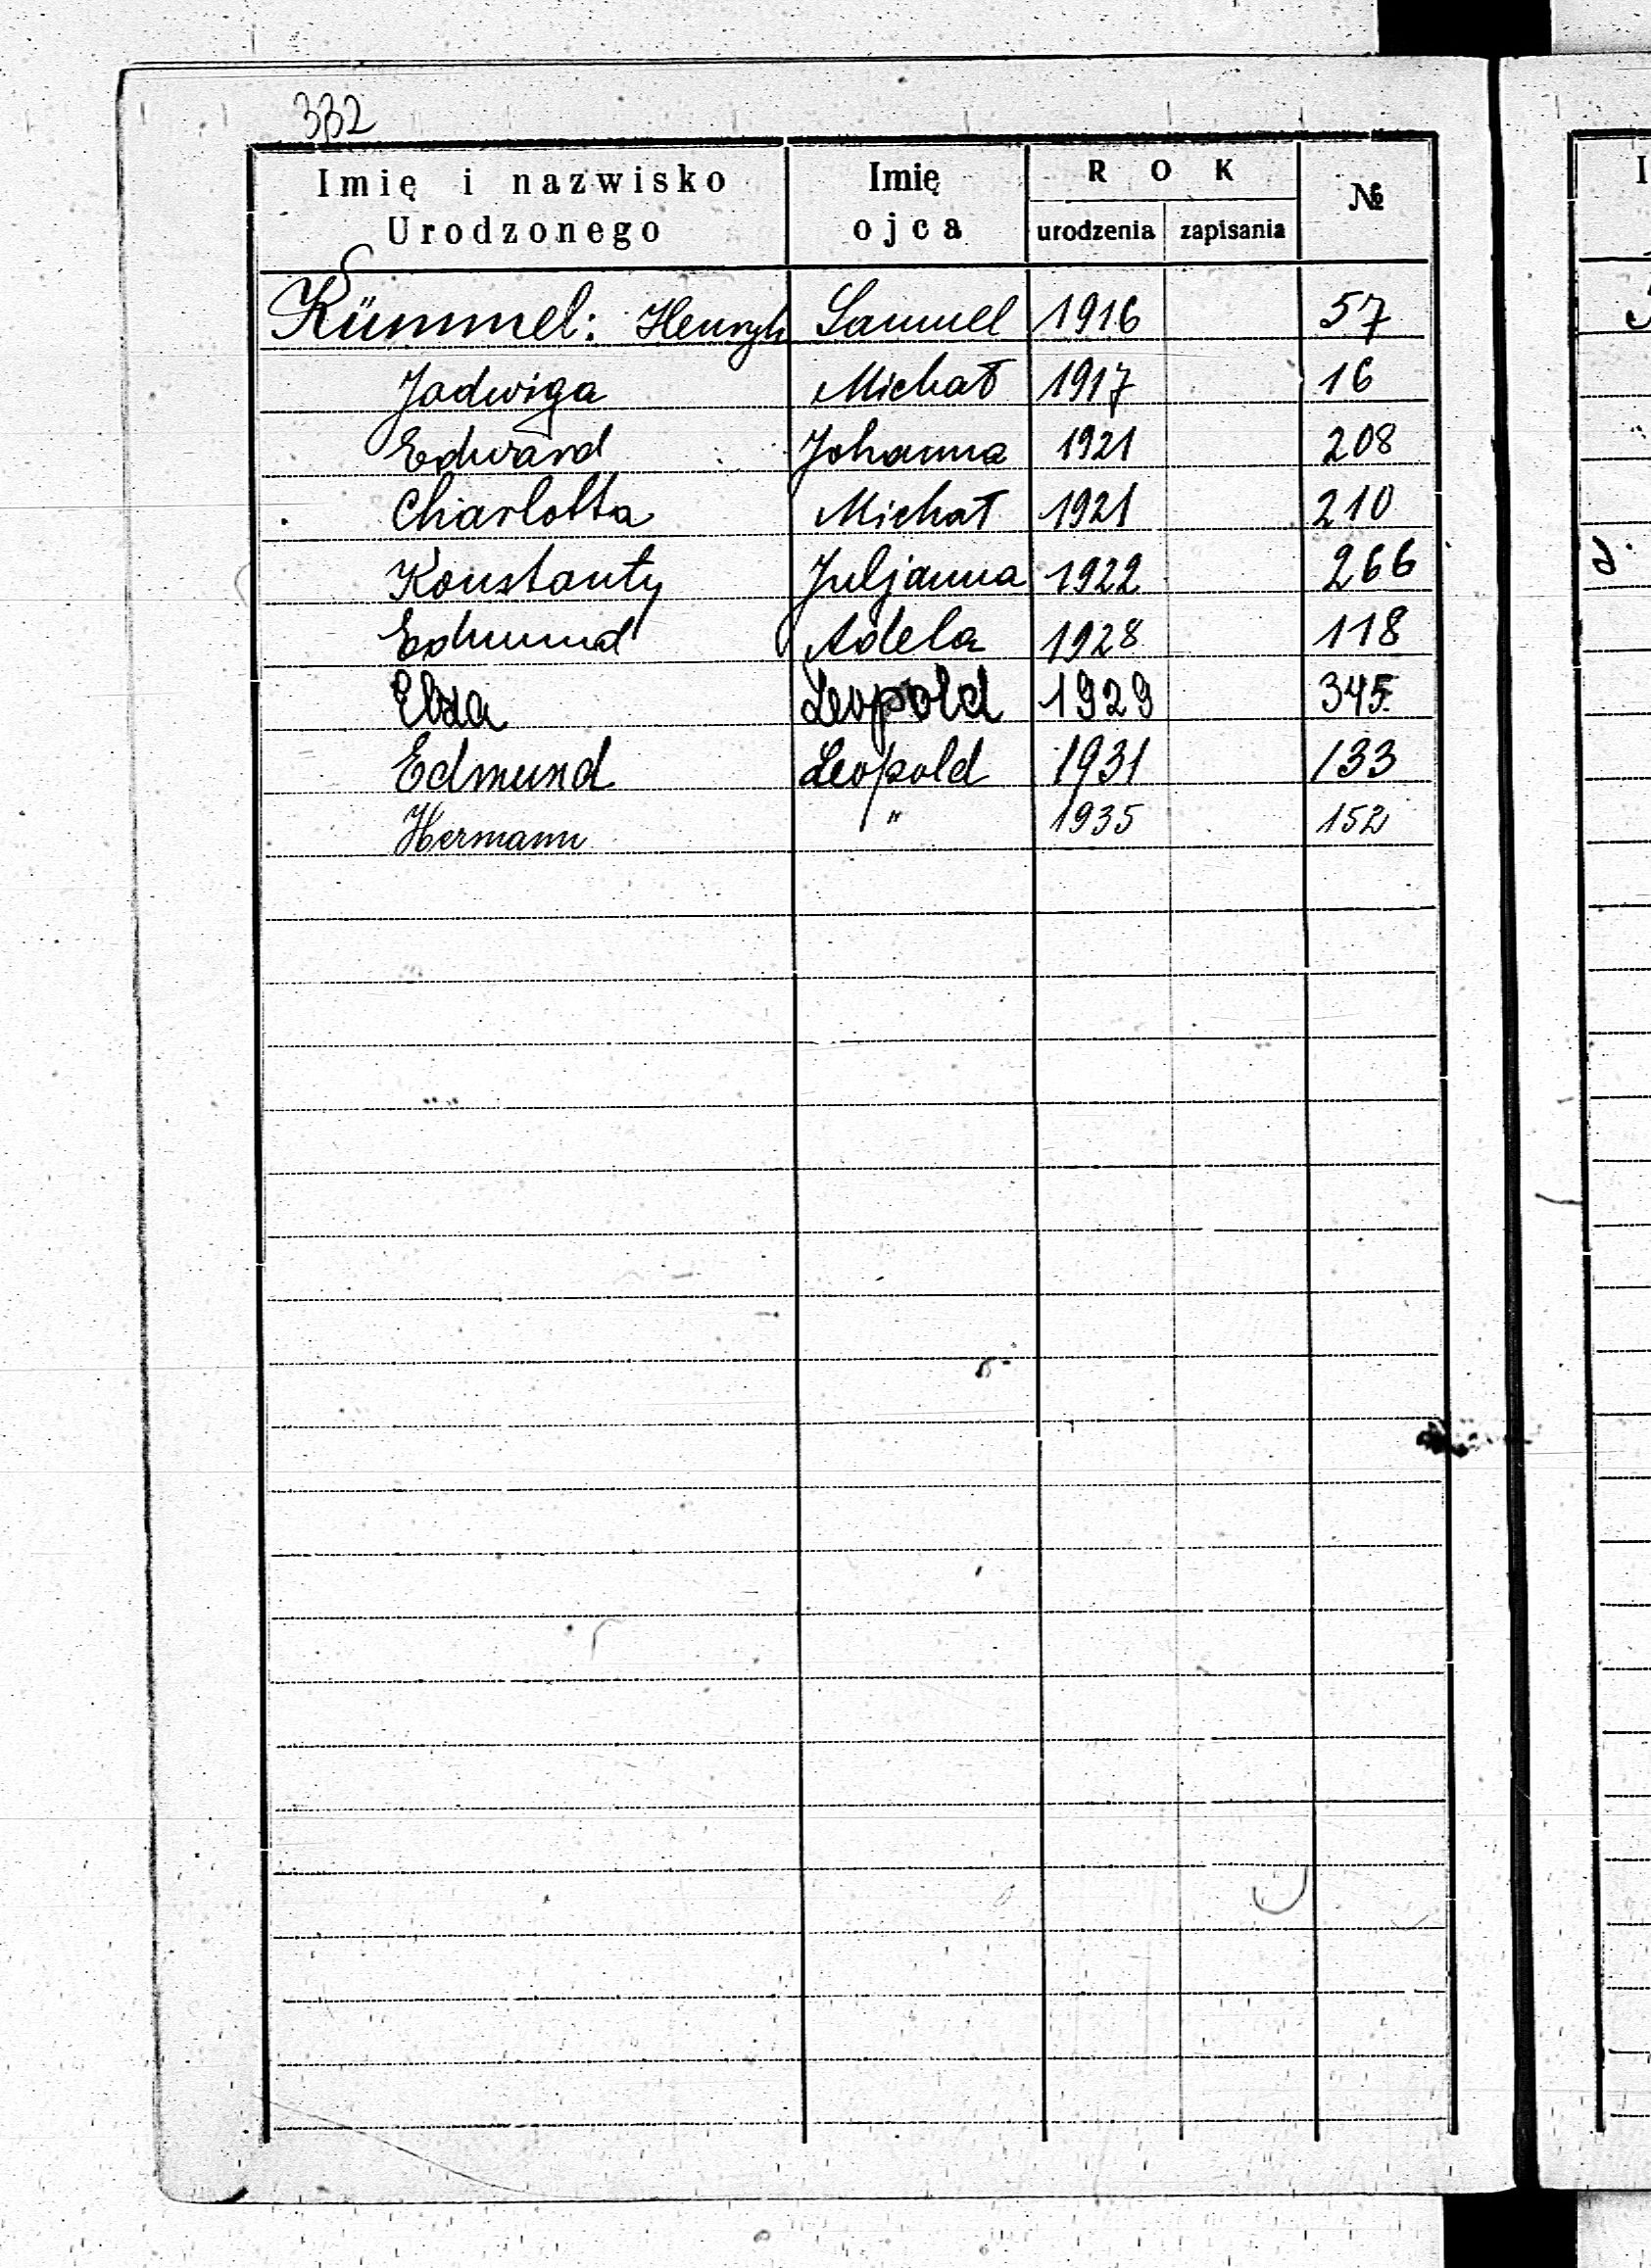 332
Imię i nazwisko Urodzonego Imię ojca ROK urodzenia zapisania №
Kümmel: Henryk Samuel 1916 57
Jadwiga Michał 1917 16
Edward Johanna 1921 208
Charlotta Michał 1921 210
Konstanty Juljanna 1922 266
Edmund Adela 1928 118
Elza Leopold 1929 345
Edmund Leopold 1931 133
Hermann " 1935 152